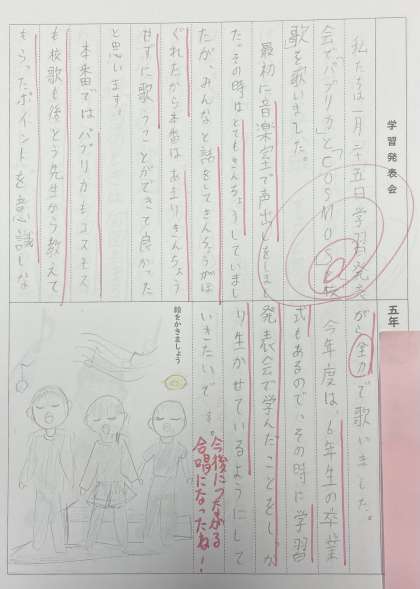 学習発表会
五年
私たちは一月二十五日学習発表
会で「パプリカ」と「COSMOS」と校
歌を歌いました。
最初に音楽室で声出しをしまし
た。その時はとてもきんちょうしていまし
たが、みんなと話をしてきんちょうがほ
ぐれたから本番はあまりきんちょう
せずに歌うことができて良かった
と思います。
本番ではパプリカもコスモス
も校歌も後とう先生から教えて
もらったポイントを意識しな
がら全力で歌いました。
今年度は、6年生の卒業
式もあるので、その時に学習
発表会で学んだことをしっか
り生かせているようにして
いきたいです。
今後につながる
合唱になったね!
絵をかきましょう